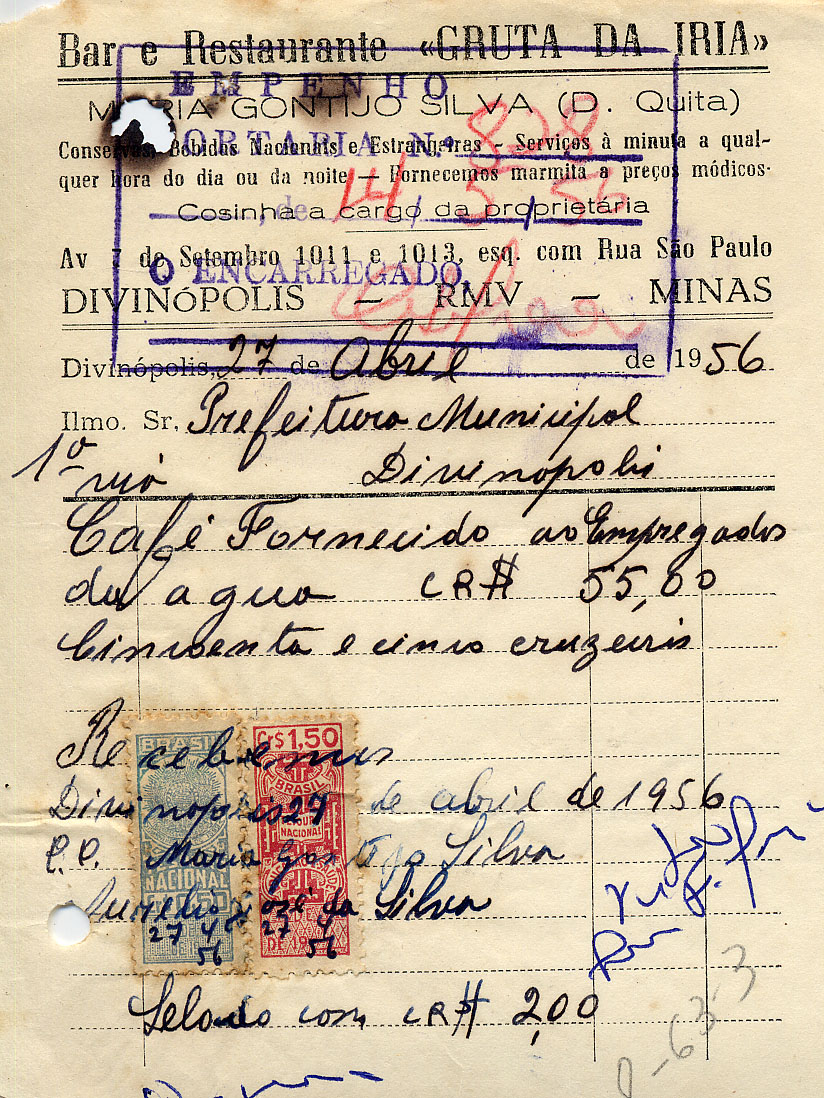 Bar e Restaurante «GRUTA DA IRIA»
EMPENHO
MARIA GONTIJO SILVA (D. Quita)
PORTARIA N.º 828
Conservas, Bebidas Nacionais e Estranheiras - Serviços à minuta a qual-
quer hora do dia ou da noite — Fornecemos marmita a preços módicos-
, de 14/5/56
Cosinha a cargo da proprietária
Av 7 de Setembro 1011 e 1013, esq. com Rua São Paulo
O ENCARREGADO,
DIVINÓPOLIS — RMV — MINAS
Divinópolis, 27 de Abril de 1956
Ilmo. Sr. Prefeitura Municipal
1º via Divinopolis
Café Fornecido ao Empregados
da agua CR$ 55,00
Cincoenta e cinco cruzeiris
Cr$1,50
Recebemus
BRASIL
BRASIL
Divinopolis 27 de abril de 1956
NACIONAL
P.P. Maria Gontijo Silva
NACIONAL
Aurelio José da Silva
27 4 56
27 4 56
Selado com CR$ 2,00
0-633